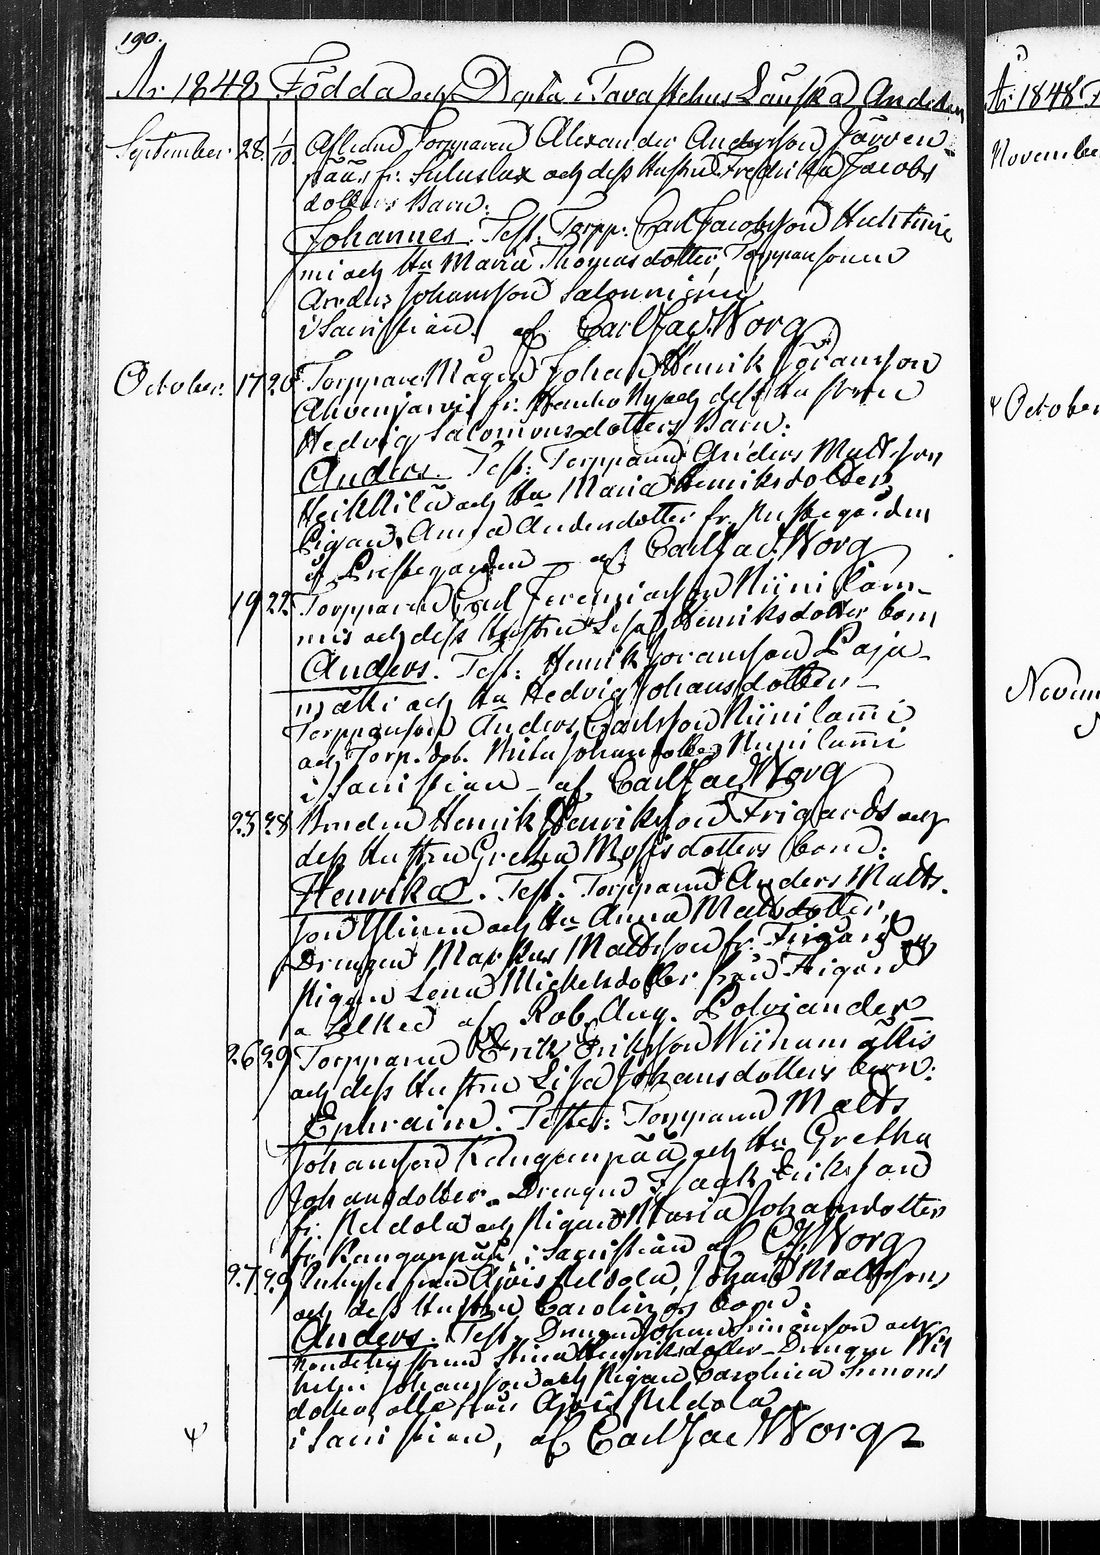 190.
År 1848 Födda och Döpta i Tavastehus Lands
September. 28. 1/10. Torparen Alexander Andersson Järven-
pää, fr: och dess Hustru Fredrika Jacobs
dotters Barn:
Johannes. Test. Torpp: Carl Jacobsson
mi och Hu Maria Thomasdotter, Torpparsonen
Anders Johansson Salonniemi
i Sacristian. af Carl Jac. Worg
October. 17 20 Torppare Mågen Johan Henrik Göransson
Ahvenjärvi fr: och dess Hustrun
Hedvig Salomonsdotters Barn:
Anders. Test: Torpparen Anders Mattsson
Heikkilä och Hu Maria Henriksdotter,
Pigan Anna Andersdotter fr. Prestegården
i Prestegården – af Carl Jac. Worg
19 22 Torpparen Carl Jeremiasson Niinilam-
mis och dess Hustru Lisa Henriksdotter barn
Anders. Test: Henrik Göransson Paja-
mäki och Hu Hedvig Johansdotter –
Torpparsonen Anders Carlsson Niinilammi
och Torp. dot. Johansdotter Niinilammi
i Sacristian – af Carl Jac Worg
23 28 Bonden Henrik Henriksson Frigårds och
dess Hustru Gretha Mosisdotters barn:
Henrika. Test. Torpparen Anders Matts-
son och Hu Anna Mattsdotter,
Drengen Markus Mattsson fr: Frigård och
Pigan Lena Mickelsdotter från Frigård
af Rob. Aug. Polviander
26 29 Torpparen Erik Eriksson Wiinamäkis
och dess Hustru Lisa Johansdotters barn:
Ephraim. Tester: Torpparen Matts
Johansson Kanganpää och Hu Gretha
Johansdotter. Drengen Isaak Eriksson
fr: Peldola och Pigan Maria Johansdotter
fr. Kanganpää, i Sacristian af CJ Worg
27 29 från Ajois Peldola, Johan Mattssons
och dess Hustru Carolinas barn:
Anders. Test. Drengen Johan Simonsson och
Stina Henriksdotter – Drengen Wil
helm Johansson och Pigan Carolina Simons
dotter, alla från Ajois Peldola
i Sacristian, af Carl Jac Worg
År 1848 F
November
October
Novem